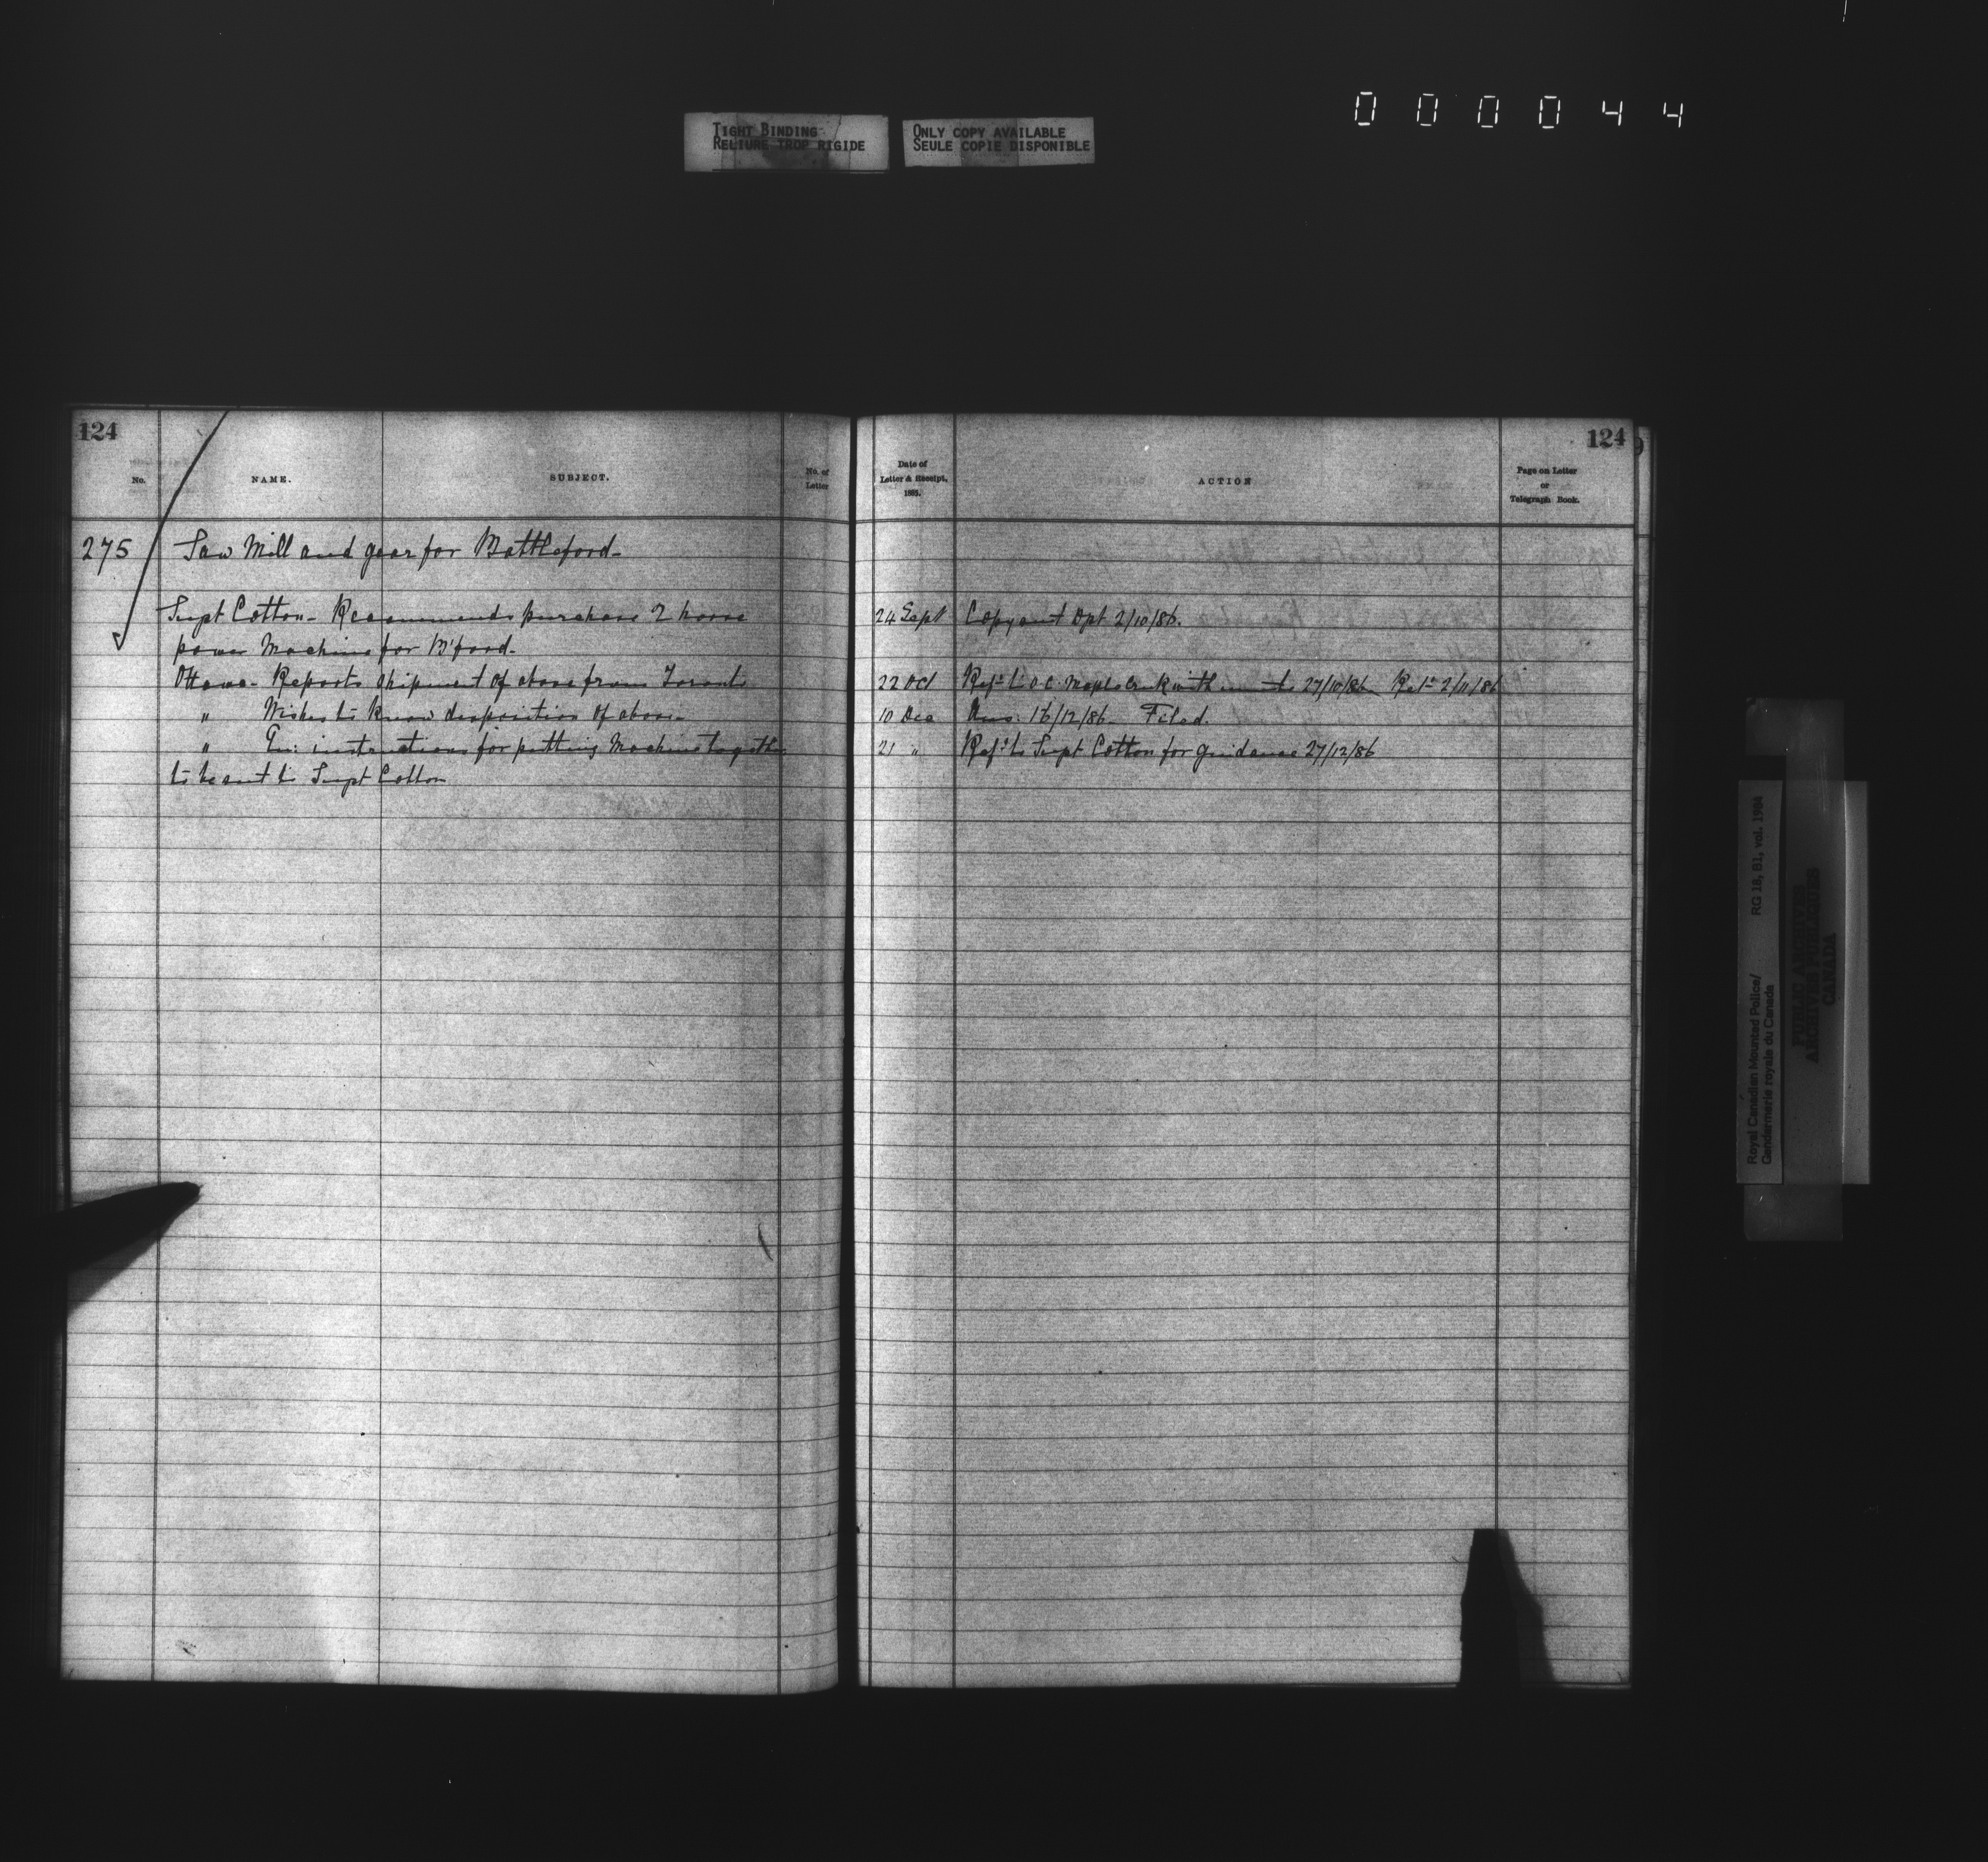 000044
TIGHT BINDING
RELIURE TROP RIGIDE
ONLY COPY AVAILABLE
SEULE COPIE DISPONIBLE
124
No.
NAME.
SUBJECT.
No. of
Letter
275
Saw Mill and gear for Battleford
Supt Cotton - Recommends purchase 2 horse
power Machine for B'ford.
Ottawa - Reports shipment of above from Toronto
" Wishes to know disposition of above
" instructions for putting Machine together
to be sent to Supt Cotton
124
Date of
Letter & Receipt,
1885.
ACTION
Page on Letter
or
Telegraph Book.
24 Sept Copy sent Dpt 2/10/86.
22 Oct Refd to O.C. Maple Creek with 27/10/86 Retd 2/11/86
10 Dec Ans: 16/12/86 Filed.
21 " Refd to Supt Cotton for guidance 27/12/86
Royal Canadian Mounted Police/
Gendarmerie royale du Canada
RG 18, B1, vol. 1984
PUBLIC ARCHIVES
ARCHIVES PUBLIQUES
CANADA